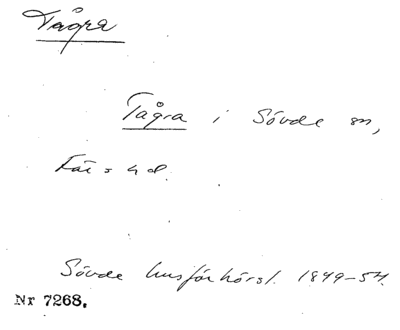 Tågra
Tågra i Sövde sn,
Färs hd.
Sövde husförhörsl. 1849-54.
Nr 7268.